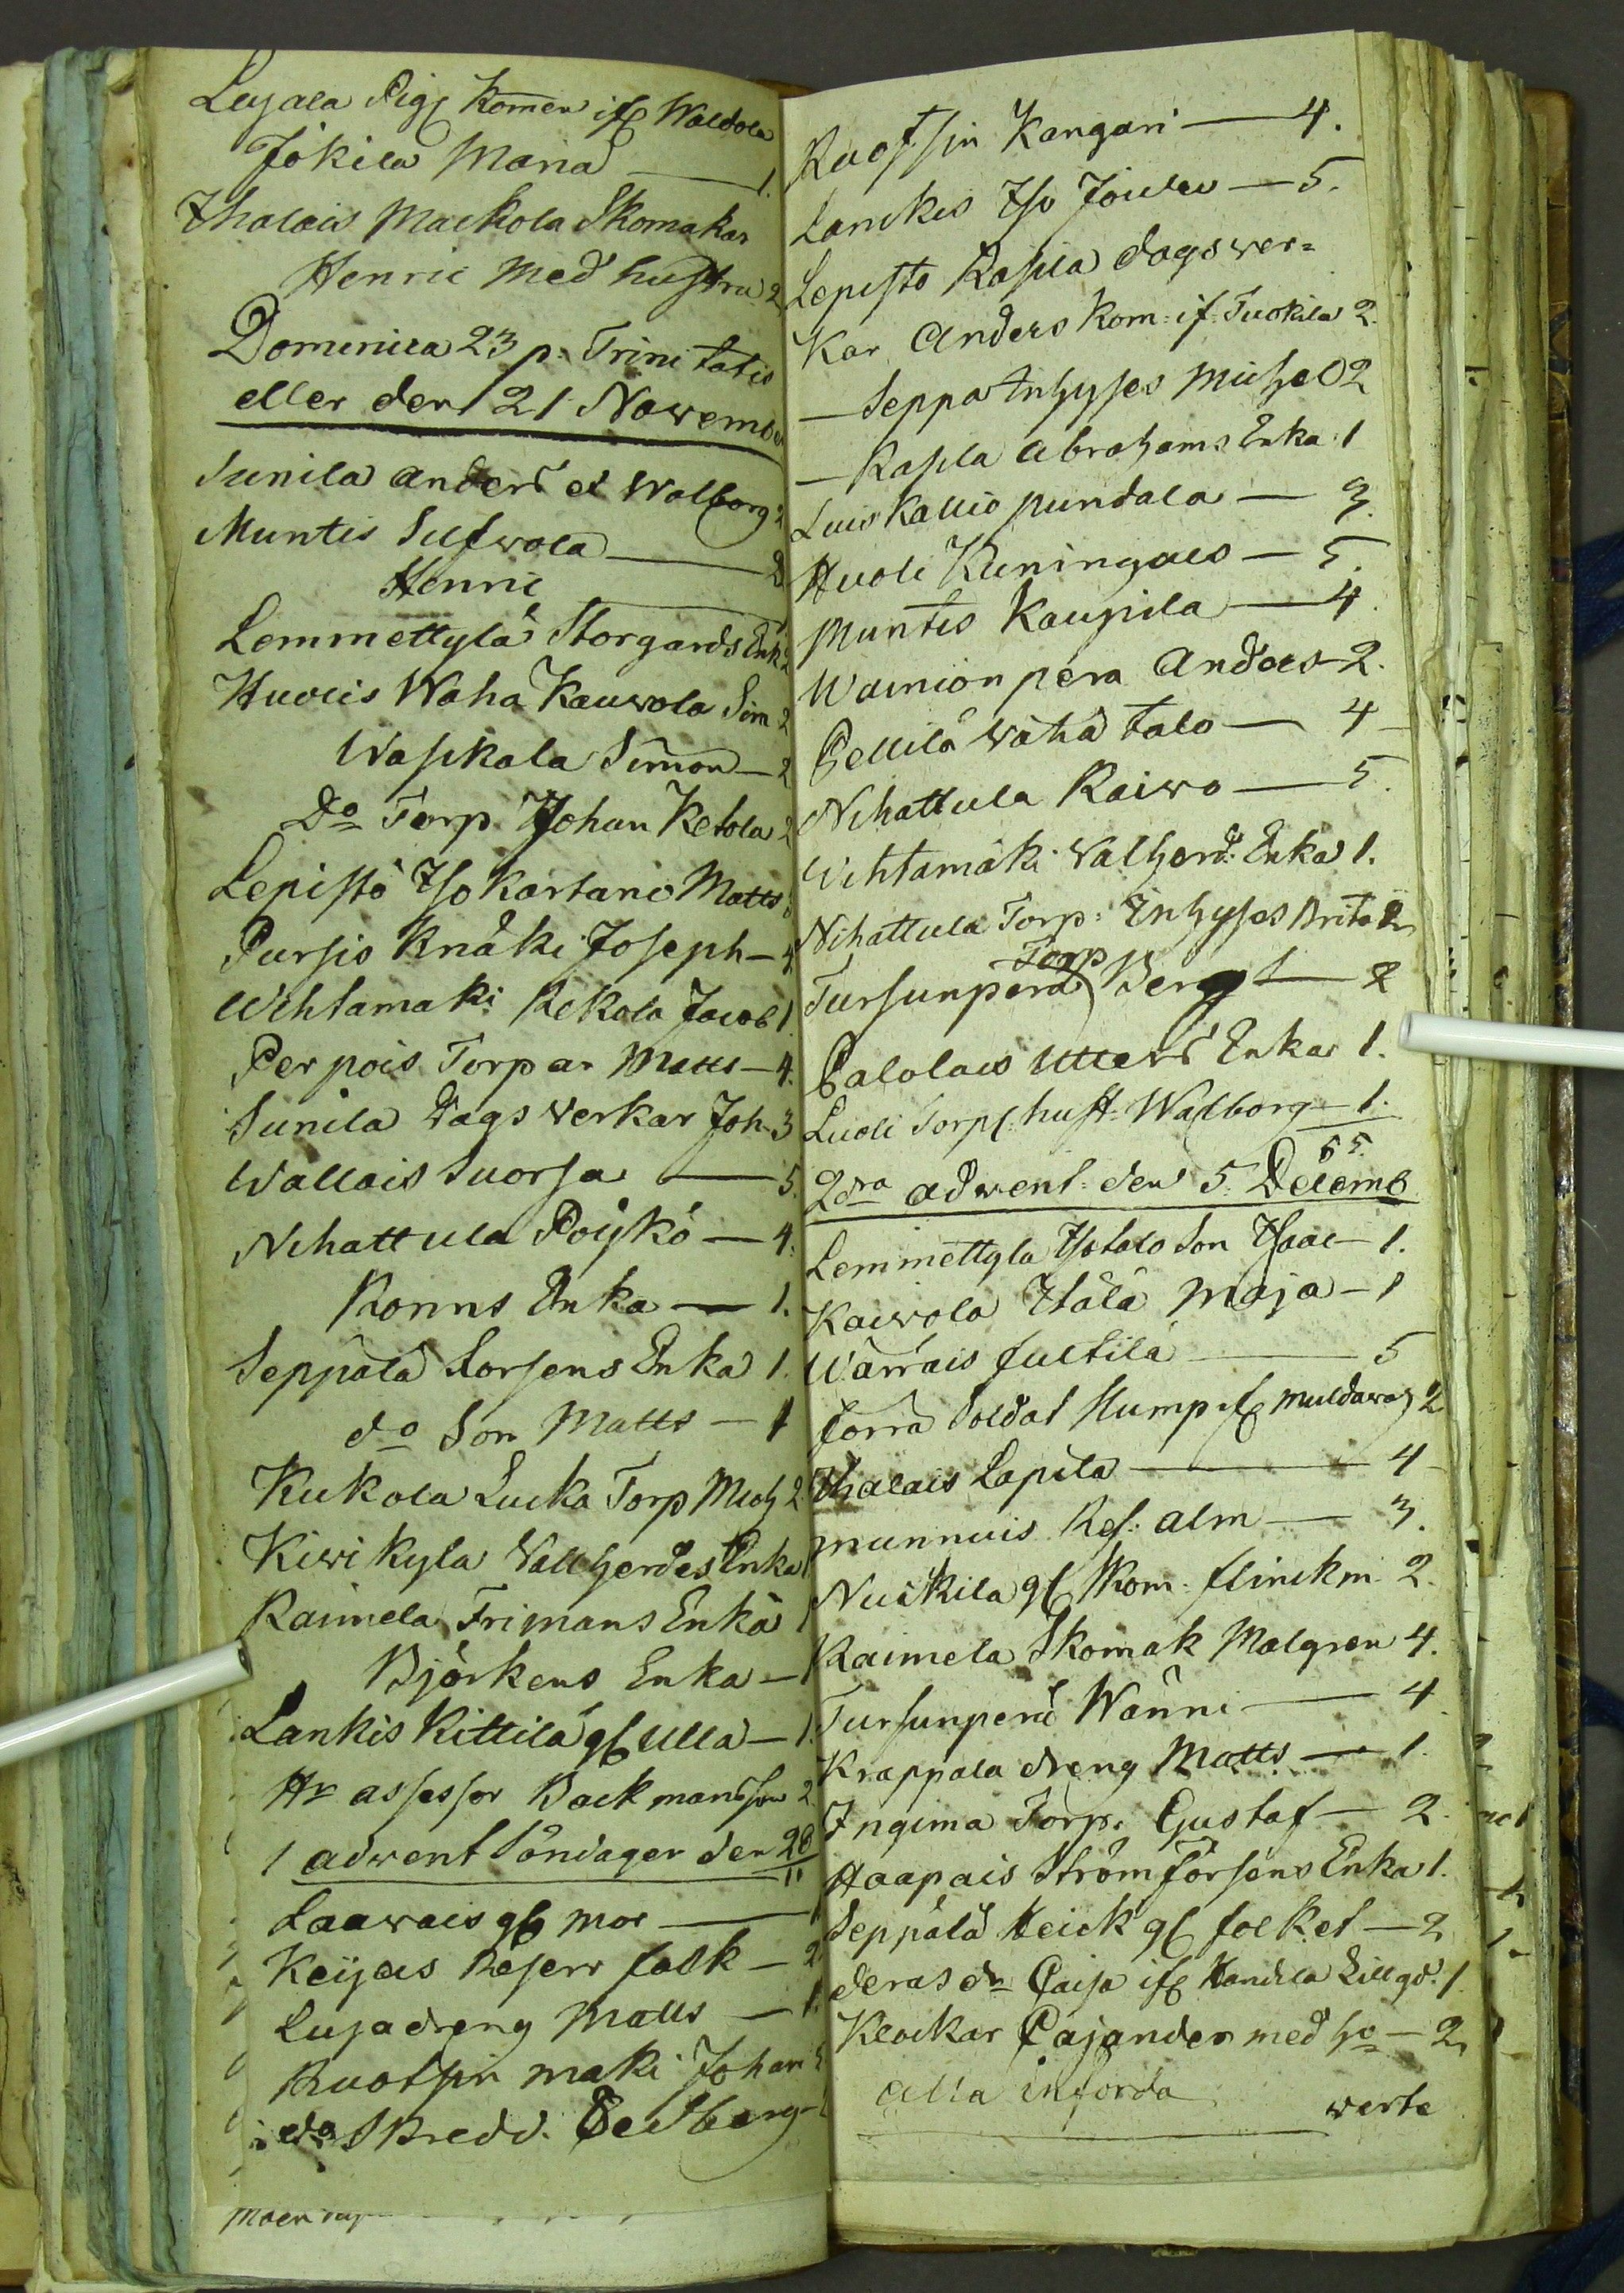 Lujala Pig Komen if Waldola
Jokila Maria — 1.
Ihalais Mackola Skomakar
Henric med hustru 2
Dominica 23 p. Trinitatis
eller den 21 November
Sunila Anders et Walborg 2
Muntis Silfwola — 2
Henric
Lemmettylä Storgards Enk 2
Huolis Wähä Kauwola Sim 2
Wasikala Simon — 2
Do Torp Johan Ketola 2
Lepistö Iso Kartano Matts
Pursis Knäki Joseph — 4
Wihtamaki Rekola Jacob 1
Perpois Torpar Matts — 4.
Sunila Dagsverkar Joh. 3
Wallais Suorsa — 5.
Nihattula Pöykö — 4.
Konns Enka — 1.
Seppälä Lorsens Enka 1.
do Son Matts — 1
Kukola Lucka Torp Mich 2
Kiwikyla Vallgerdes Enka
Raimela Frimans Enka 1
Björkens Enka — 1
Lankis Kittilä gl Ulla — 1.
Hr assessor Backmanssson 2.
1 adwent Söndagen den 28/11
Laawais gl mor — 1
Keijais Reserv folk — 2
Lujadreng Matts — 1.
Ruotsin maki Johan
do Skredd. Sedberg
Ruotsin Kangari — 4.
Lanckis Iso Jouler — 5.
Lepisto Rasila dagswer=
kar Anders kom: if: Tuokila 2.
— Seppa Inhyses Michel 2
— Rasila Abrahams Enka: 1
Luis Kallio pundala — 3.
Huoli Kuningas — 5.
Muntis Kaupila — 4.
Wainionpera Anders 2.
Pellilä Wähä talo — 4
Nihattula Raiwo — 5.
Wihtamäki Valgerd: Enka 1.
Nihattula Torp: Inhyses Brita 2
Torp
Tursunperä Bengt — 2
Palolais Utters Enka 1.
Luoli Torp: hust: Walborg — 1.
65.
2dra adwent: den 5: Decemb
Lemmettyla Isotalo Son Isaac — 1.
Kaiwola Itälä Maja — 1
Wärrais Jultila — 5
Jorra Soldat Stump if Muldawa 2
Ihalais Lapila — 4
Munnuis Res: alm — 3.
Nuickila gl Skom: flinckm. 2.
Raimela Skomak Malgren 4.
Tursunperä Wänni — 4
Krappala dreng Matts — 1.
Ingima Torp: Gustaf — 2.
Haapais Strömforsens Enka 1.
Seppälä Heick gl folket — 2
deras dr Caisa if Handila Lillgd: 1
Klockar Cajander med ho — 2
alla införda
verte